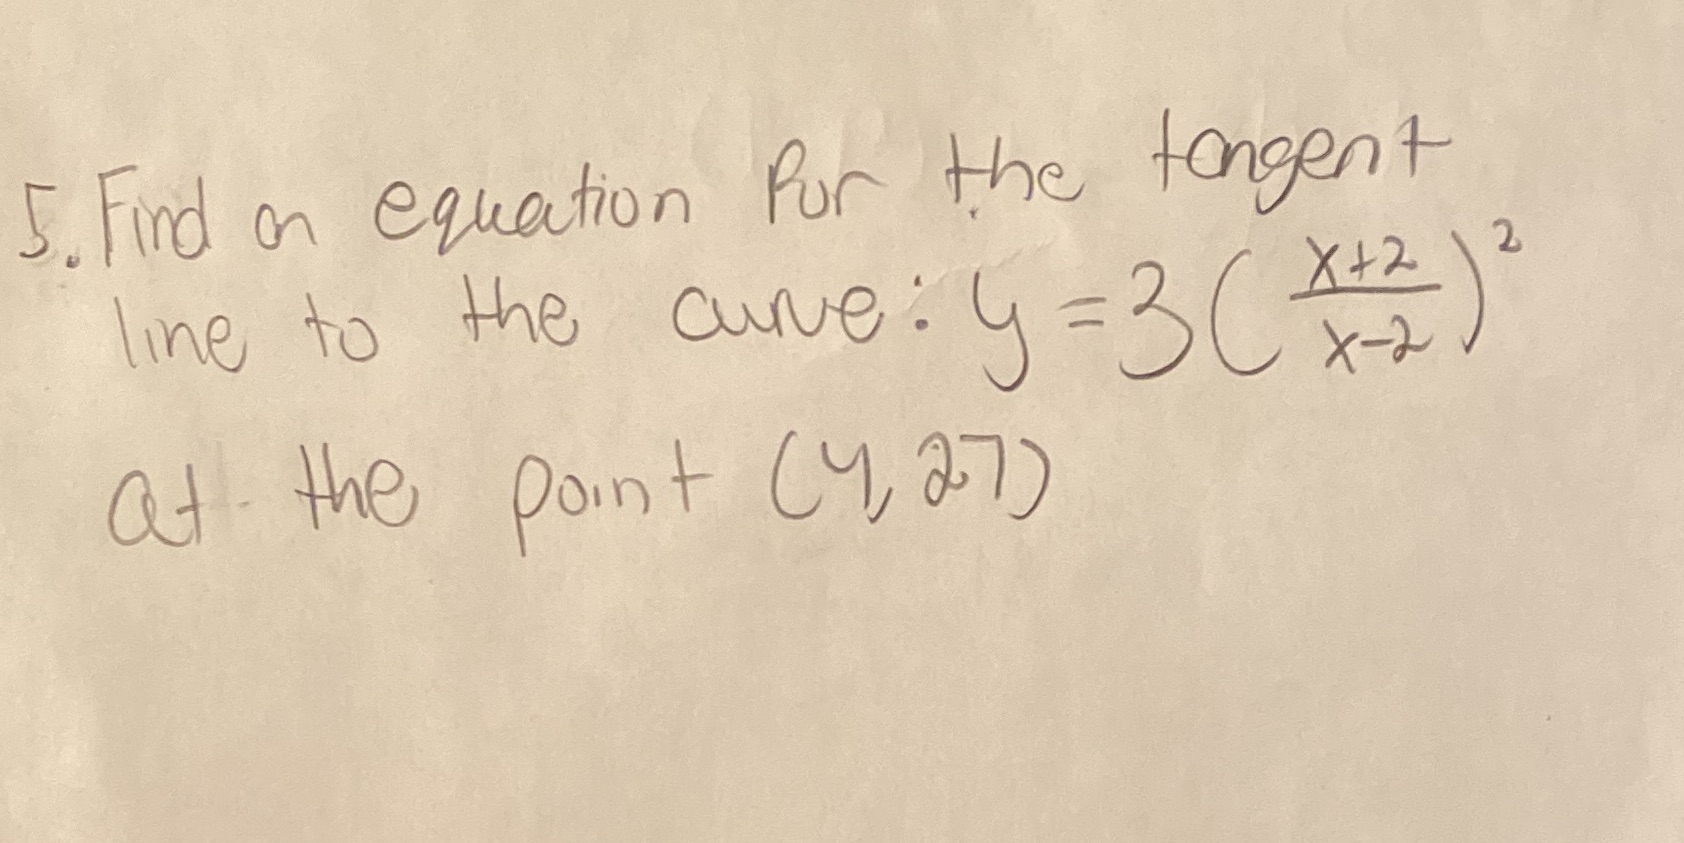 5. Find an equation for the tangent
line to the curve: y = 3 ( x+2 / x-2 )²
at the point (4, 27)